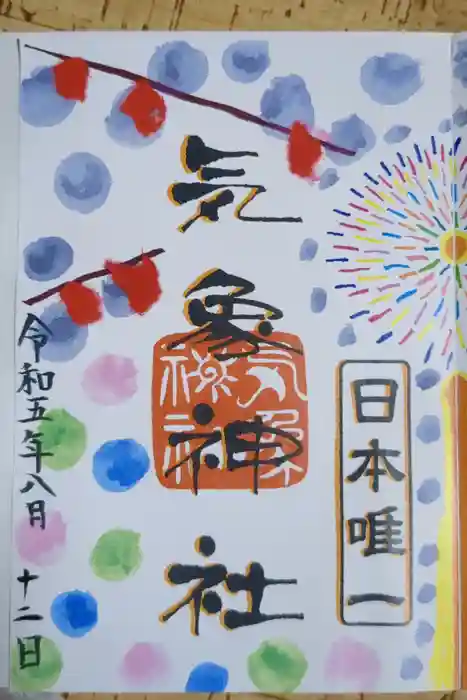 日本唯一
気象神社
令和五年八月十二日